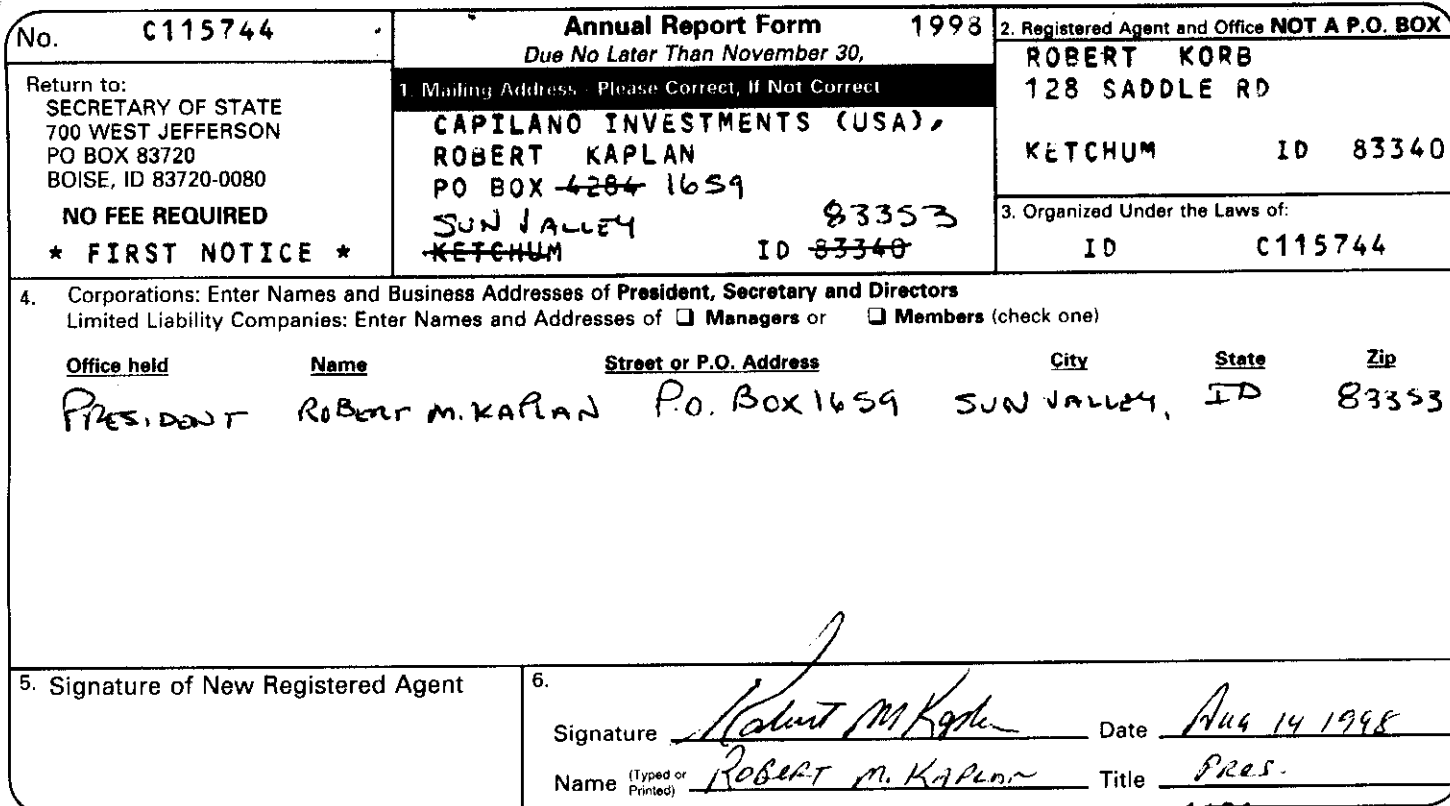 No. C115744
Return to:
SECRETARY OF STATE
700 WEST JEFFERSON
PO BOX 83720
BOISE, ID 83720-0080
NO FEE REQUIRED
* FIRST NOTICE *
Annual Report Form 1998
Due No Later Than November 30,
1. Mailing Address - Please Correct, If Not Correct
CAPILANO INVESTMENTS (USA),
ROBERT KAPLAN
PO BOX 4284 1659
SUN VALLEY 83353
KETCHUM ID 83340
2. Registered Agent and Office NOT A P.O. BOX
ROBERT KORB
128 SADDLE RD
KETCHUM ID 83340
3. Organized Under the Laws of:
ID C115744
4. Corporations: Enter Names and Business Addresses of President, Secretary and Directors
Limited Liability Companies: Enter Names and Addresses of ❑ Managers or ❑ Members (check one)
Office held Name Street or P.O. Address City State Zip
PRESIDENT ROBERT M. KAPLAN P.O. BOX 1659 SUN VALLEY, ID 83353
5. Signature of New Registered Agent
6.
Signature Robert M Kaplan Date Aug 14 1998
Name (Typed or Printed) ROBERT M. KAPLAN Title PRES.